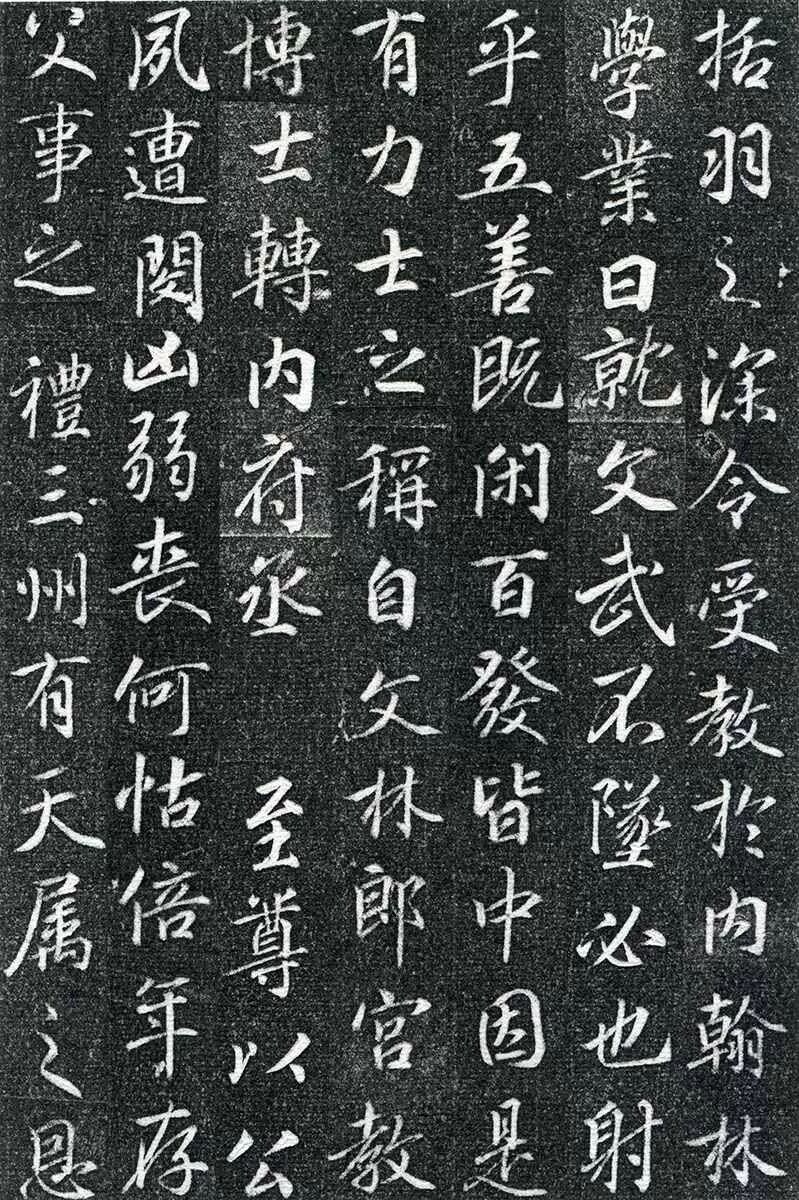 括羽之深令受教於内翰林
學業日就文武不墜必也射
乎五善既閑百發皆中因是
有力士之稱自文林郎宮教
博士轉内府丞 至尊以公
夙遭閔凶弱喪何怙倍年存
父事之禮三州有天属之恩